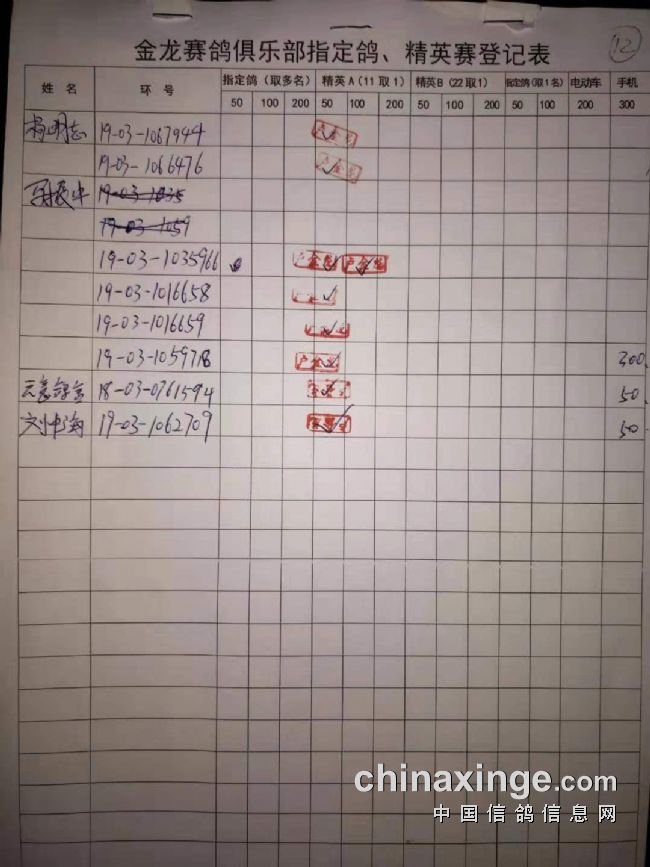 12
金龙赛鸽俱乐部指定鸽、精英赛登记表
姓名 环号 指定鸽（取多名） 精英A（11取1） 精英B（22取1） 指定鸽（取1名） 电动车 手机
50 100 200 50 100 200 50 100 200 50 100 200 200 300
19-03-1067944
19-03-1066476
19-03-1035
19-03-1059
19-03-1035966
19-03-1016658
19-03-1016659
19-03-1059718 300
18-03-0761594 50
刘中海 19-03-1062709 50
chinaxinge.com
中国信鸽信息网